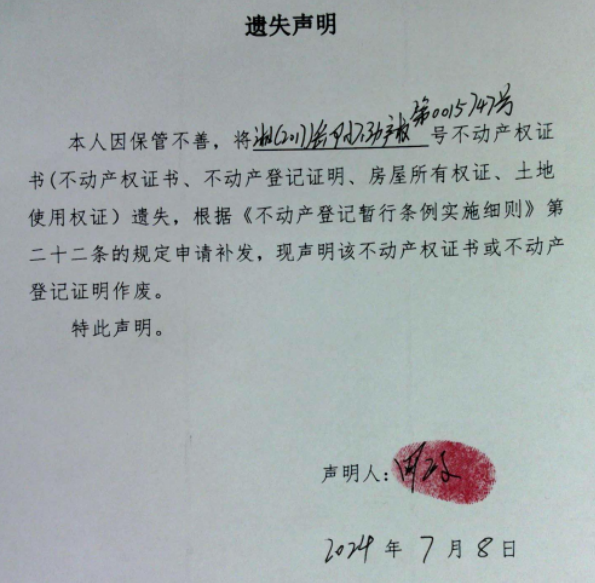 遗失声明
本人因保管不善，将湘(2017)长沙市不动产权第0015747号号不动产权证
书(不动产权证书、不动产登记证明、房屋所有权证、土地
使用权证）遗失，根据《不动产登记暂行条例实施细则》第
二十二条的规定申请补发，现声明该不动产权证书或不动产
登记证明作废。
特此声明。
声明人：
2024年7月8日